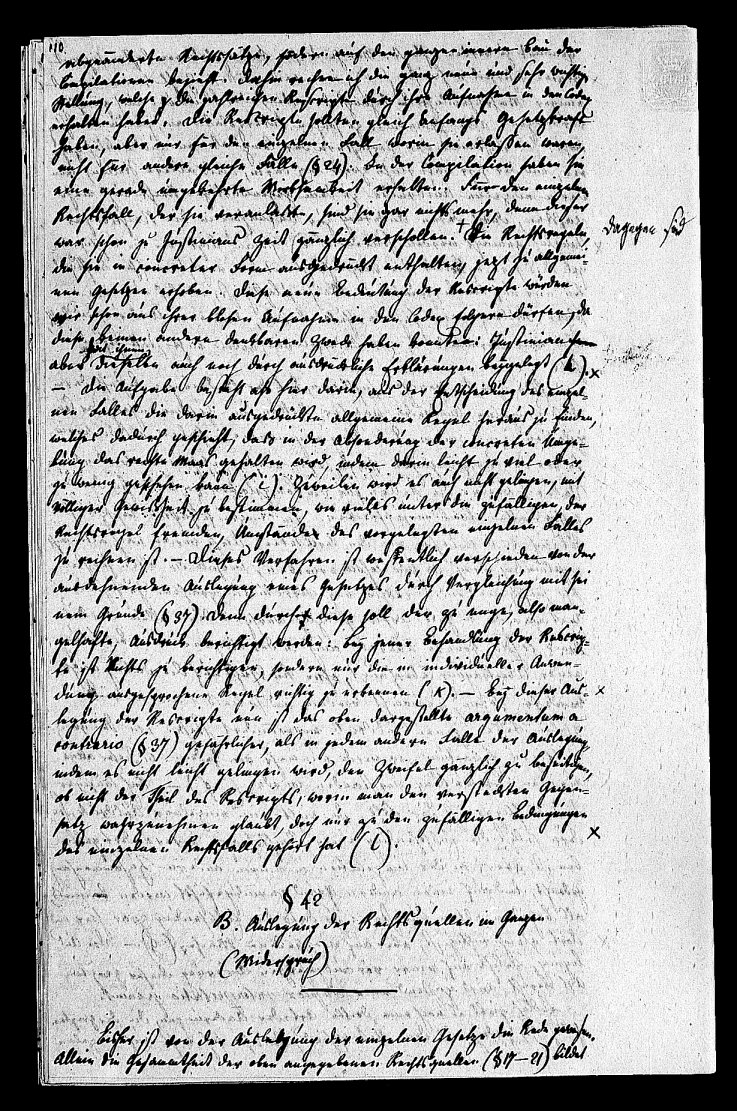 110.
abgeänderte Rechtssätze, sondern auf den ganzen innern Bau der
Compilationen bezieht. Dahin rechne ich die ganz neue und sehr wichtige
Stellung, welche die zahlreichen Rescripte durch ihre Aufnahme in den Codex
erhalten haben. Die Rescripte sollten gleich Anfangs Gesetzkraft
haben, aber nur für den einzelnen Fall worin sie erlassen waren,
nicht für andere gleiche Fälle (§ 24). In der Compilation haben sie
eine gerade umgekehrte Wirksamkeit erhalten. Für den einzelnen
Rechtsfall, der sie veranlaßte, sind sie gar nichts mehr, denn dieser
war schon zu Justinians Zeit gänzlich verschollen. + Die Rechtsregeln,
dagegen sind
die sie in concreter Form ausgedrückt enthalten, jetzt zu allgemei-
nen Gesetzen erhoben. Diese neue Bedeutung der Rescripte würden
wir schon aus ihrer bloßen Aufnahme in den Codex folgern dürfen, da
diese keinen andern denkbaren Zweck haben konnte: Justinian
aber dieselbe auch noch durch ausdrückliche Erklärungen beygelegt (h). x
– Die Aufgabe besteht also hier darin, aus der Entscheidung des einzel-
nen Falles die darin ausgedrückte allgemeine Regel heraus zu finden,
welches dadurch geschieht, daß in der Absonderung der concreten Umge-
bung das rechte Maas gehalten wird, indem darin leicht zu viel oder
zu wenig geschehen kann (i). Zuweilen wird es auch nicht gelingen, mit
völliger Gewißheit zu bestimmen, wie vieles unter die zufälligen, der
Rechtsregel fremden, Umstände des vorgelegten einzelnen Falles
zu rechnen ist. – Dieses Verfahren ist wesentlich verschieden von der
ausdehnenden Auslegung eines Gesetzes durch Vergleichung mit sei
nem Grunde (§ 37). Denn durch diese soll der zu enge, also man-
gelhafte, Ausdruck berichtigt werden: bey jener Behandlung der Rescrip-
te ist Nichts zu berichtigen, sondern nur die in individueller Anwen-
dung ausgesprochene Regel richtig zu erkennen (k). – Bey dieser Aus- x
legung der Rescripte nun ist das oben dargestellte argumentum a
contrario (§ 37) gefährlicher, als in jedem andern Falle der Auslegung,
indem es nicht leicht gelingen wird, den Zweifel gänzlich zu beseitigen,
ob nicht der Theil des Rescripts, worin man den versteckten Gegen-
satz wahrzunehmen glaubt, doch nur zu den zufälligen Bedingungen
des einzelnen Rechtsfalls gehört hat (l). x
§ 42
B. Auslegung der Rechtsquellen im Ganzen
(Widerspruch)
Bisher ist von der Auslegung der einzelnen Gesetze die Rede gewesen.
Allein die Gesammtheit der oben angegebenen Rechtsquellen (§ 17–21) bildet